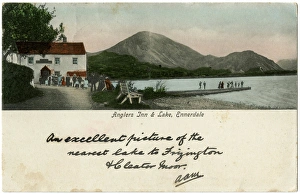 Anglers Inn & Lake, Ennerdale
An excellent picture of the
nearest lake to Frizington
& Cleator Moor.